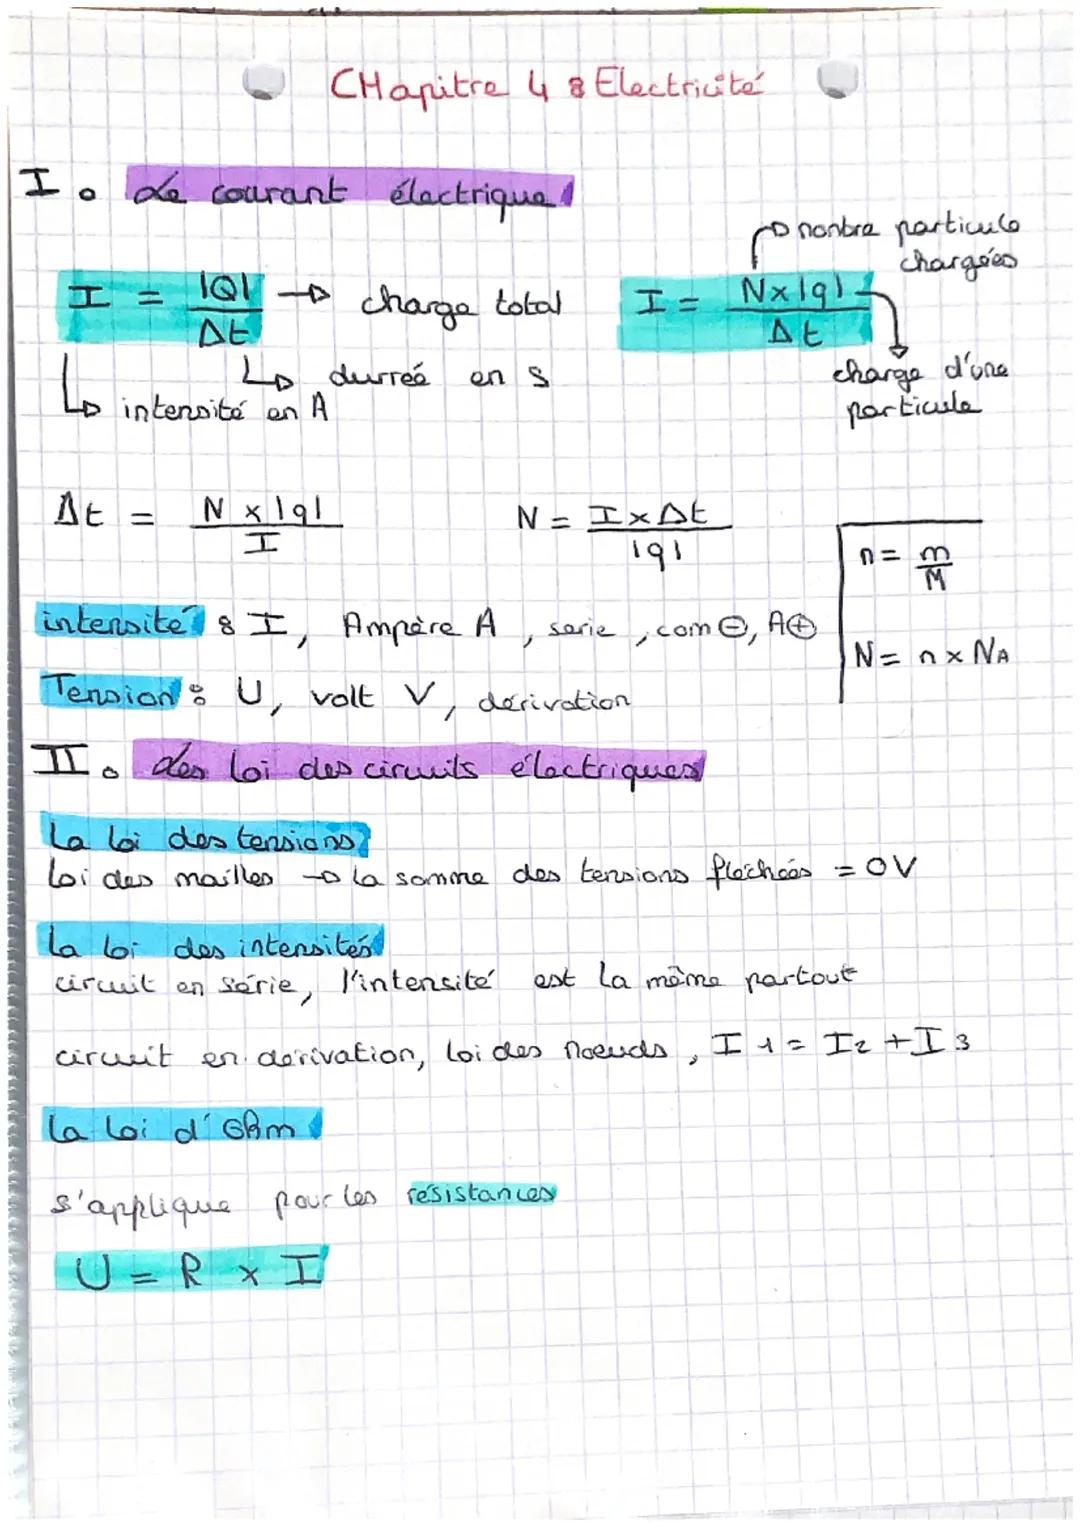 CHapitre 4 : Electricité
I. Le courant électrique
I = |Q| / Δt → charge total
↳ durreé en s
↳ intensité en A
I = N×|q| / Δt
→ nombre particule chargées
charge d'une particule
Δt = N × |q| / I
N = I × Δt / |q|
n = m / M
N = n × NA
intensité : I, Ampère A, serie, com ⊖, A⊕
Tension : U, volt V, dérivation
II. Les loi des circuits électriques
La loi des tensions
Loi des mailles → la somme des tensions flechées = 0V
La loi des intensités
circuit en série, l'intensité est la même partout
circuit en dérivation, loi des noeuds, I1 = I2 + I3
La loi d'Ohm
s'applique pour les résistances
U = R × I